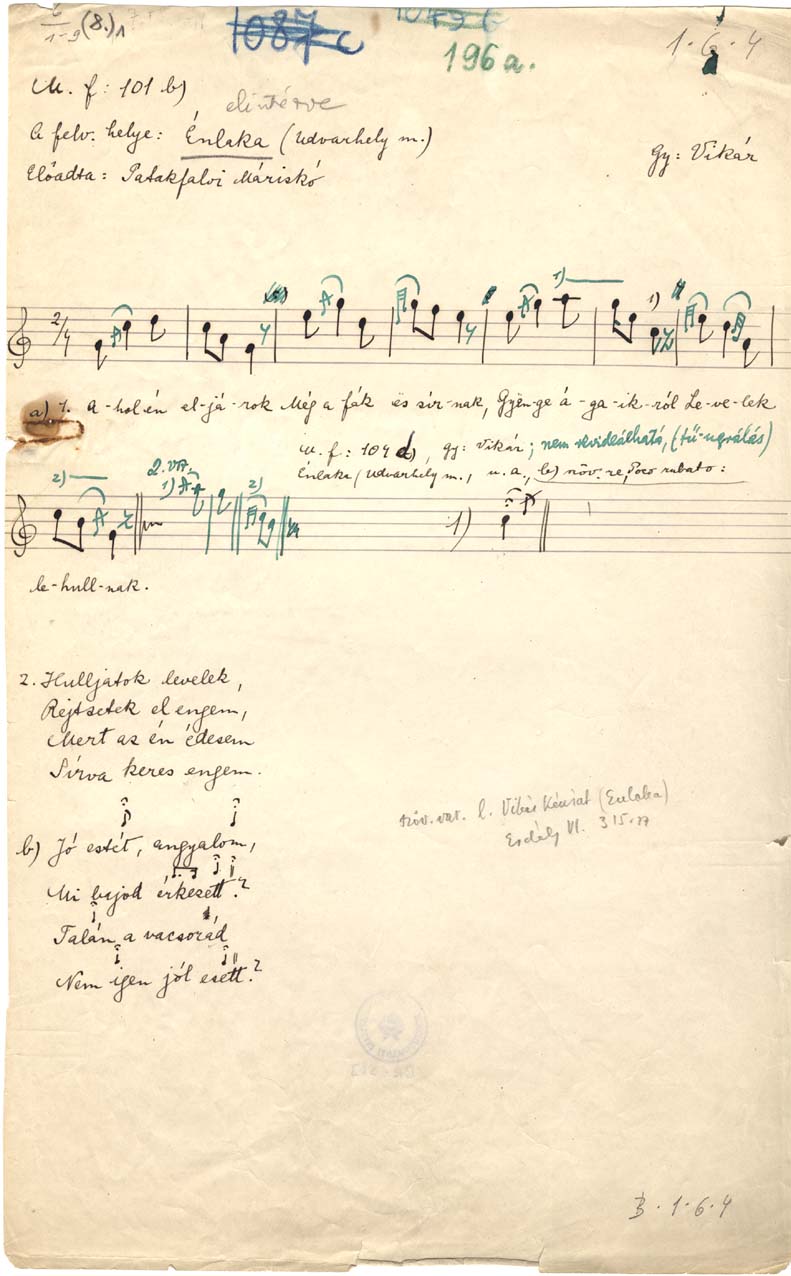 6/1-9 (8.)1
1087 c
1079 b
196 a.
1·6·4
M. f: 101 b)
elintézve
A felv. helye: Énlaka (Udvarhely m.)
Gy: Vikár
Előadta: Patakfalvi Máriskó
2/4
1)
1)
a) 1. A-hol én el-já-rok Még a fák és sír-nak, Gyën-ge á-ga-ik-ról Le-ve-lek
M. f: 104 d), gy: Vikár; nem revideálható, (tű-ugrálás)
Énlaka (Udvarhely m., u. a., b) növ. re, Poco rubato:
2)
2. VA.
1)
2)
1)
le-hull-nak.
2. Hulljatok levelek,
Rejtsetek el engem,
Mert az én édesem
Sírva keres engem.
b) Jó estét, angyalom,
Mi bajod érkezett?
Talán a vacsorád
Nem igen jól esett?
Erdély VI. 315.
B·1·6·4